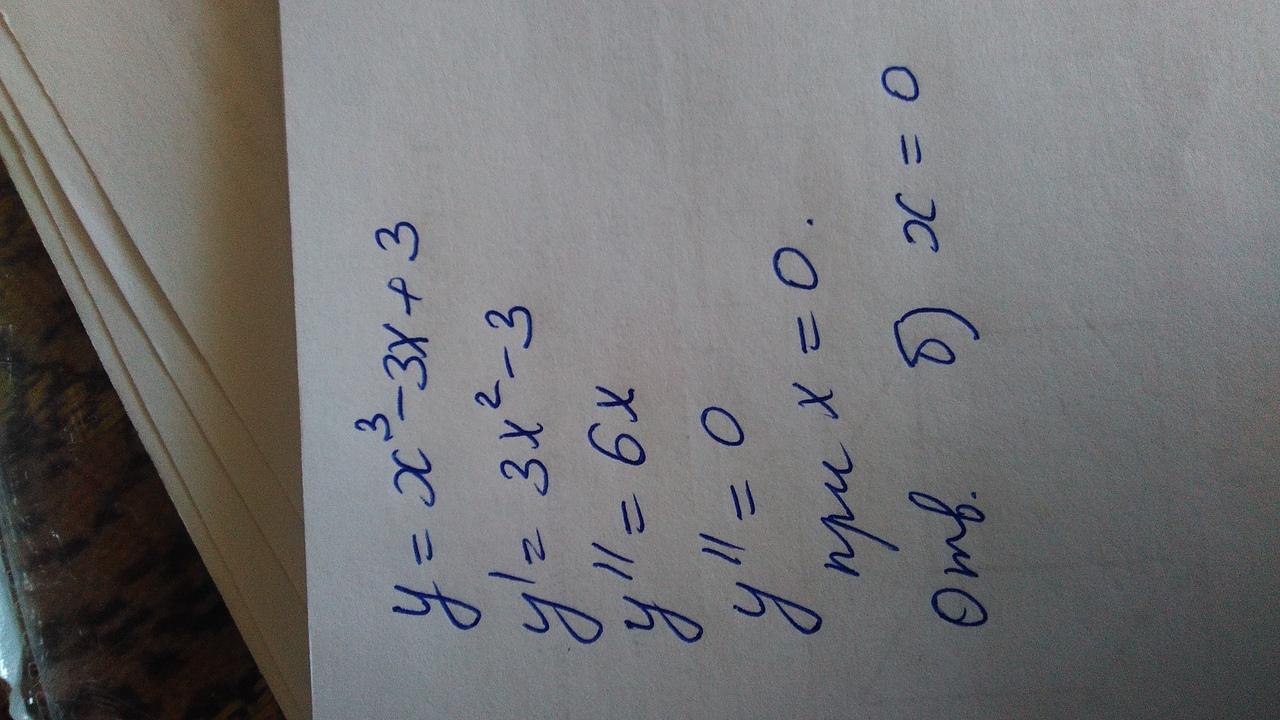 y = x³ - 3x + 3
y' = 3x² - 3
y'' = 6x
y'' = 0
при x = 0.
Отв. б) x = 0